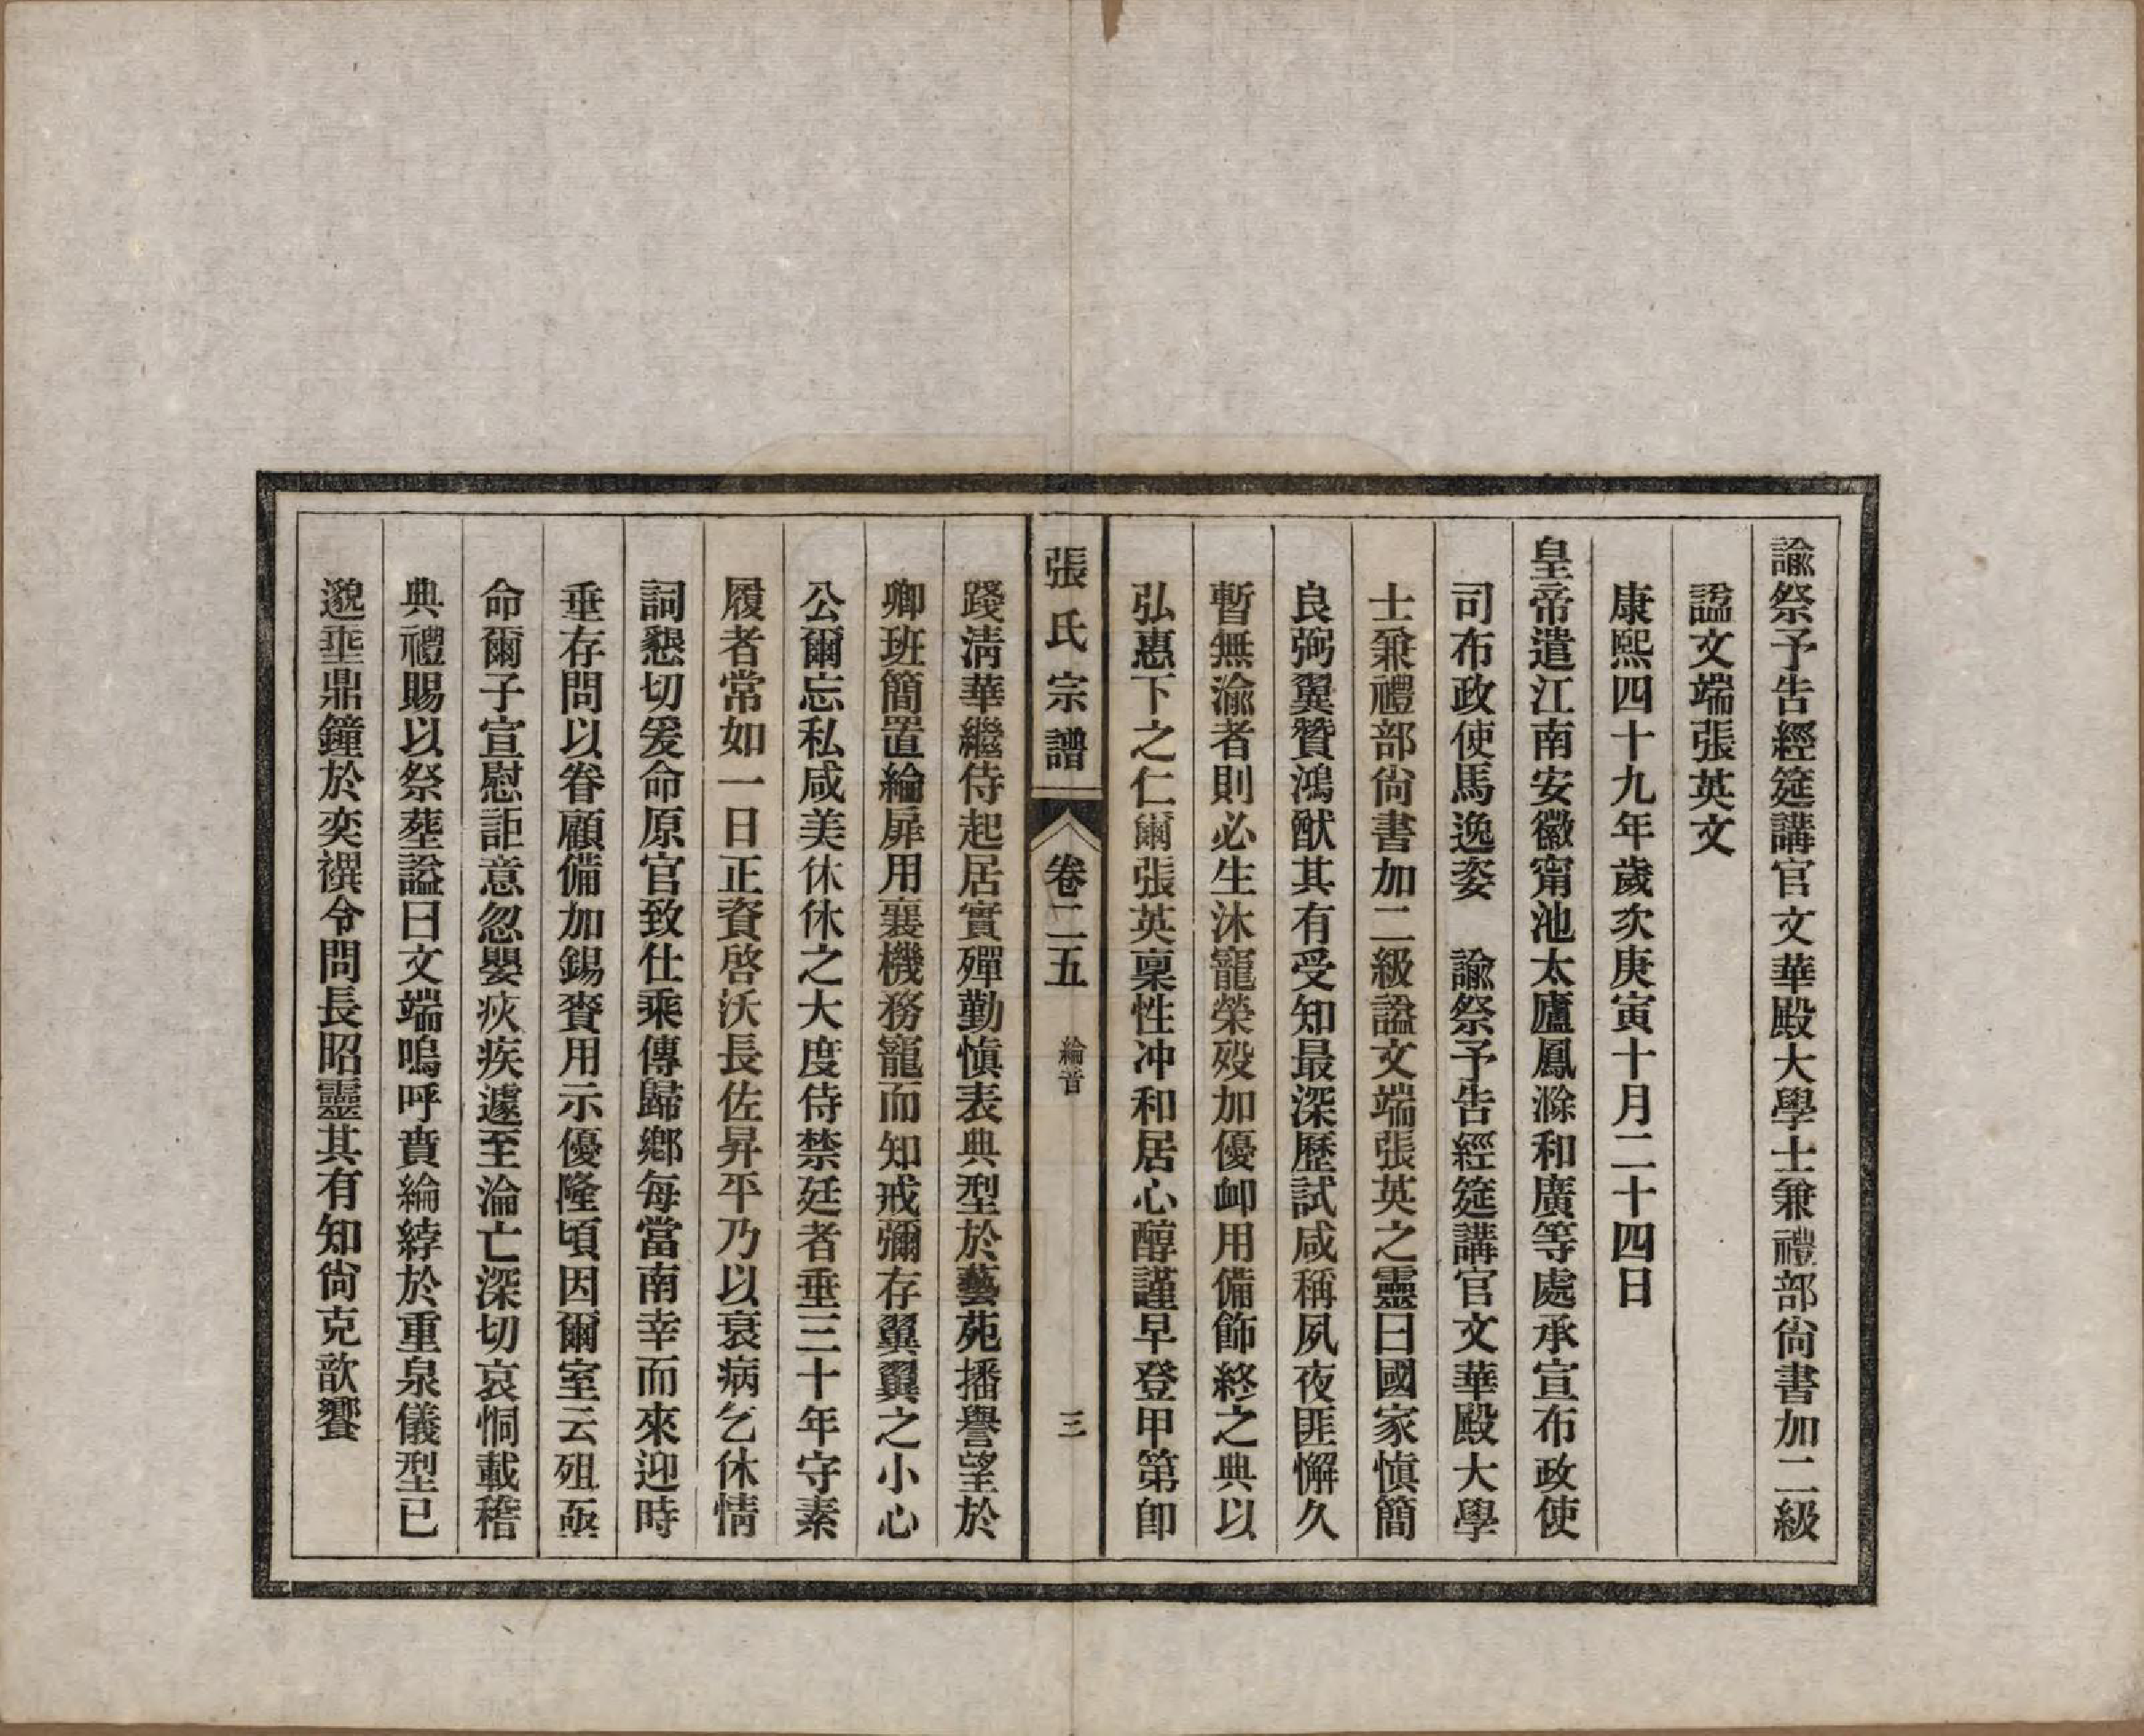 諭祭予告經筵講官文華殿大學士兼禮部尙書加二級
諡文端張英文
康熙四十九年歲次庚寅十月二十四日
皇帝遣江南安徽甯池太廬鳳滁和廣等處承宣布政使
司布政使馬逸姿　諭祭予告經筵講官文華殿大學
士兼禮部尙書加二級諡文端張英之靈曰國家愼簡
良弼翼贊鴻猷其有受知最深歷試咸稱夙夜匪懈久
暫無渝者則必生沐寵榮歿加優卹用備飾終之典以
弘惠下之仁爾張英稟性冲和居心醇謹早登甲第卽
張氏宗譜　卷二五　綸音　三
踐淸華繼侍起居實殫勤愼表典型於藝苑播譽望於
卿班簡置綸扉用襄機務寵而知戒彌存翼翼之小心
公爾忘私咸美休休之大度侍禁廷者垂三十年守素
履者常如一日正資啓沃長佐昇平乃以衰病乞休情
詞懇切爰命原官致仕乘傳歸鄕每當南幸而來迎時
垂存問以眷顧備加錫賚用示優隆頃因爾室云殂亟
命爾子宣慰詎意忽嬰疢疾遽至淪亡深切哀恫載稽
典禮賜以祭葬諡曰文端嗚呼賁綸綍於重泉儀型已
邈垂鼎鐘於奕禩令問長昭靈其有知尙克歆饗